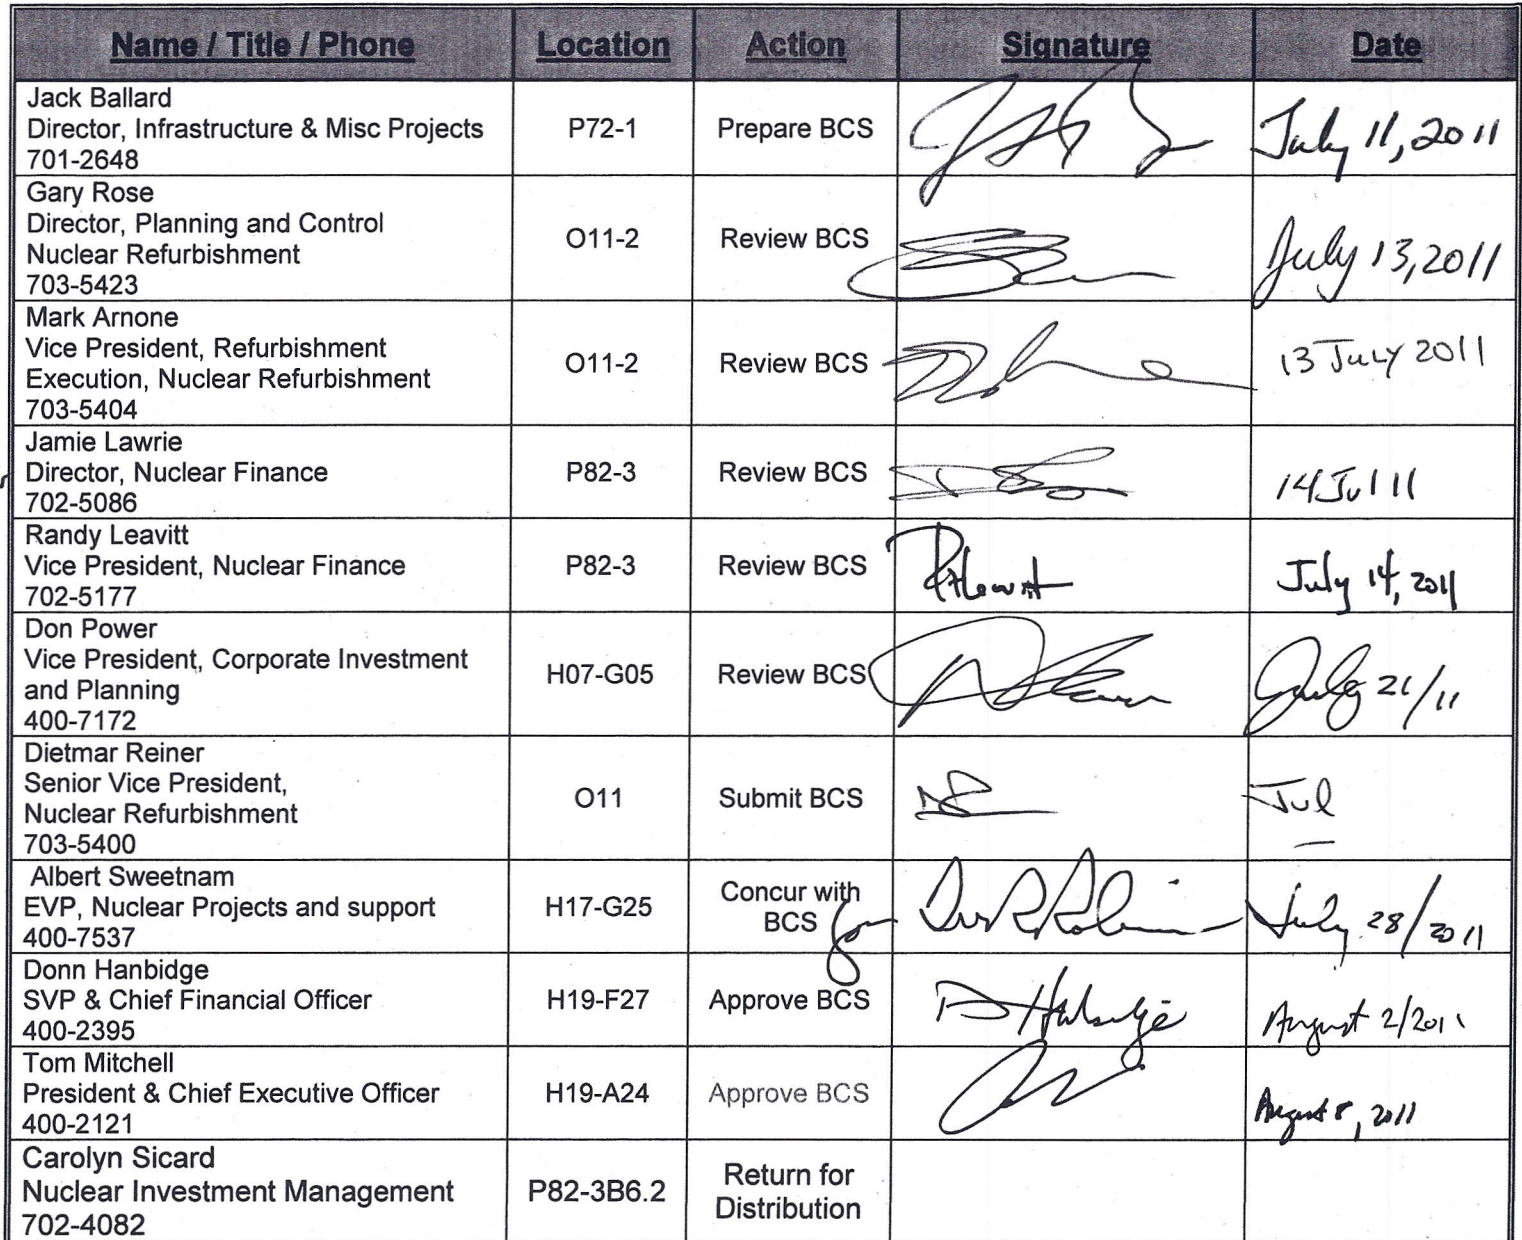 Name / Title / Phone Location Action Signature Date
Jack Ballard
Director, Infrastructure & Misc Projects P72-1 Prepare BCS July 11, 2011
701-2648
Gary Rose
Director, Planning and Control
Nuclear Refurbishment O11-2 Review BCS July 13, 2011
703-5423
Mark Arnone
Vice President, Refurbishment
Execution, Nuclear Refurbishment O11-2 Review BCS 13 July 2011
703-5404
Jamie Lawrie
Director, Nuclear Finance P82-3 Review BCS 14 Jul 11
702-5086
Randy Leavitt
Vice President, Nuclear Finance P82-3 Review BCS July 14, 2011
702-5177
Don Power
Vice President, Corporate Investment
and Planning H07-G05 Review BCS July 21/11
400-7172
Dietmar Reiner
Senior Vice President,
Nuclear Refurbishment O11 Submit BCS Jul
703-5400
Albert Sweetnam
EVP, Nuclear Projects and support H17-G25 Concur with
400-7537 BCS for July 28/2011
Donn Hanbidge
SVP & Chief Financial Officer H19-F27 Approve BCS August 2/2011
400-2395
Tom Mitchell
President & Chief Executive Officer H19-A24 Approve BCS August 8, 2011
400-2121
Carolyn Sicard
Nuclear Investment Management P82-3B6.2 Return for
702-4082 Distribution